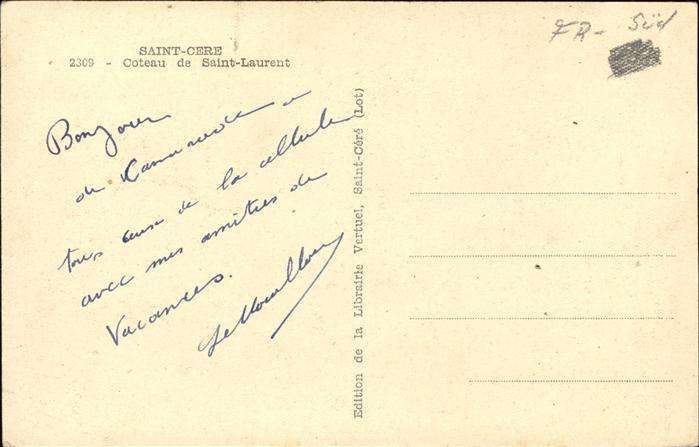 SAINT-CERE
2309 - Coteau de Saint-Laurent
FR- Süd
Bonjour
du Camarade a
tous ceux de la cellule
avec mes amitiés de
Vacances.
Edition de la Librairie Vertuel, Saint-Céré (Lot)